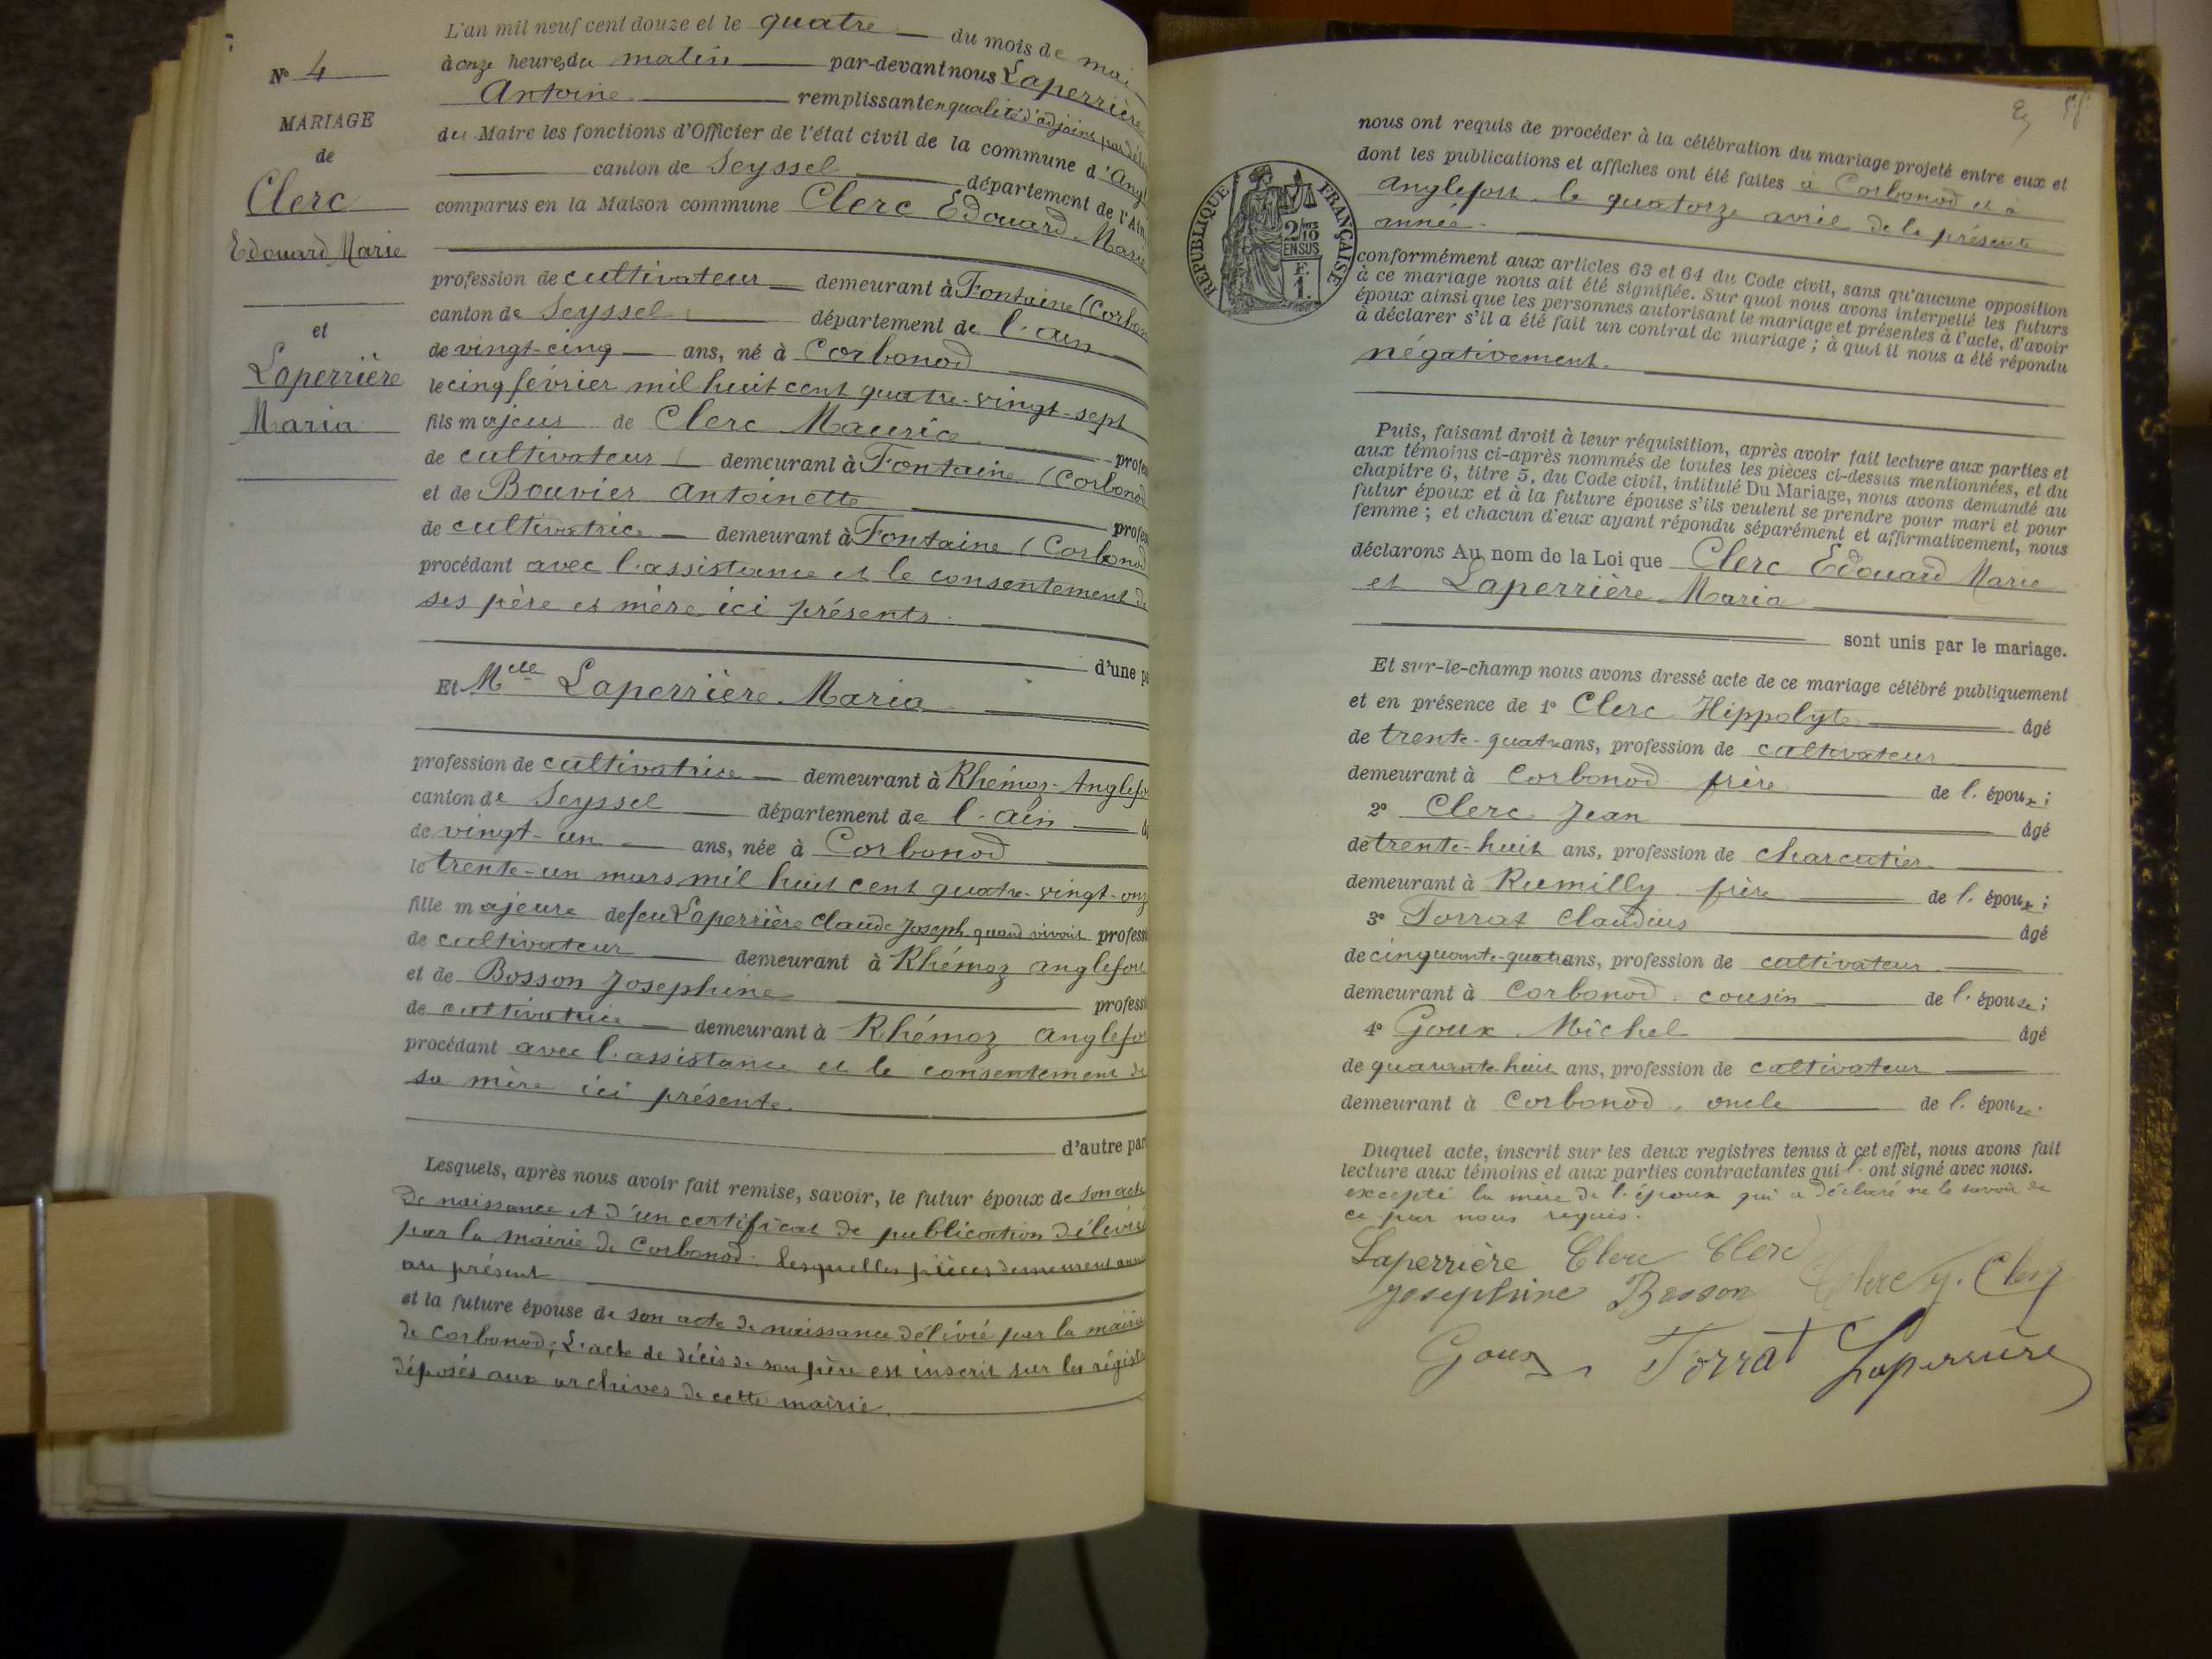 L'an mil neuf cent douze et le quatre du mois de mai
N° 4
à onze heures du matin par-devant nous Laperrière
Antoine remplissant en qualité d'adjoint
MARIAGE
de
Clerc
Edouard Marie
et
Laperrière
Maria
du Maire les fonctions d'Officier de l'état civil de la commune d'Angl
canton de Seyssel département de l'Ain
comparus en la Maison commune Clerc Edouard Marie
profession de cultivateur demeurant à Fontaine (Corbon
canton de Seyssel département de l'Ain
de vingt-cinq ans, né à Corbonod
le cinq février mil huit cent quatre-vingt-sept
fils majeur de Clerc Maurice profes
de cultivateur demeurant à Fontaine (Corbonod
et de Bouvier Antoinette profes
de cultivatrice demeurant à Fontaine (Corbonod
procédant avec l'assistance et le consentement de
ses père et mère ici présents.
d'une pa
Et Melle Laperrière Maria
profession de cultivatrice demeurant à Rhémoz-Anglefo
canton de Seyssel département de l'Ain
de vingt-un ans, née à Corbonod
le trente-un mars mil huit cent quatre-vingt-onz
fille majeure de feu Laperrière Claude Joseph quand vivait professi
de cultivateur demeurant à Rhémoz Anglefort
et de Bosson Josephine professi
de cultivatrice demeurant à Rhémoz Anglefor
procédant avec l'assistance et le consentement de
sa mère ici présente.
d'autre par
Lesquels, après nous avoir fait remise, savoir, le futur époux de son acte
de naissance et d'un certificat de publication délivré
par la mairie de Corbonod. lesquelles pièces demeurent
au présent
et la future épouse de son acte de naissance délivré par la mairie
de Corbonod; L'acte de décès de son père est inscrit sur les régist
déposés aux archives de cette mairie.
nous ont requis de procéder à la célébration du mariage projeté entre eux et
dont les publications et affiches ont été faites à Corbonod et à
Anglefort le quatorze avril de la présente
année.
RÉPUBLIQUE FRANÇAISE
2/10
EN SUS
F.
1.
conformément aux articles 63 et 64 du Code civil, sans qu'aucune opposition
à ce mariage nous ait été signifiée. Sur quoi nous avons interpellé les futurs
époux ainsi que les personnes autorisant le mariage et présentes à l'acte, d'avoir
à déclarer s'il a été fait un contrat de mariage ; à quoi il nous a été répondu
négativement.
Puis, faisant droit à leur réquisition, après avoir fait lecture aux parties et
aux témoins ci-après nommés de toutes les pièces ci-dessus mentionnées, et du
chapitre 6, titre 5, du Code civil, intitulé Du Mariage, nous avons demandé au
futur époux et à la future épouse s'ils veulent se prendre pour mari et pour
femme ; et chacun d'eux ayant répondu séparément et affirmativement, nous
déclarons Au nom de la Loi que Clerc Edouard Marie
et Laperrière Maria
sont unis par le mariage.
Et sur-le-champ nous avons dressé acte de ce mariage célébré publiquement
et en présence de 1° Clerc Hippolyte âgé
de trente-quatre ans, profession de cultivateur
demeurant à Corbonod frère de l'époux ;
2° Clerc Jean âgé
de trente-huit ans, profession de charcutier
demeurant à Rumilly frère de l'époux ;
3° Torrat Claudius âgé
de cinquante-quatre ans, profession de cultivateur
demeurant à Corbonod. cousin de l'épouse ;
4° Goux Michel âgé
de quarante-huit ans, profession de cultivateur
demeurant à Corbonod, oncle de l'épouse.
Duquel acte, inscrit sur les deux registres tenus à cet effet, nous avons fait
lecture aux témoins et aux parties contractantes qui l'ont signé avec nous.
excepté la mère de l'époux qui a déclaré ne le savoir de
ce par nous requis.
Laperrière Clerc Clerc
Josephine Bosson Clerc J. Clerc
Goux Torrat Laperrière